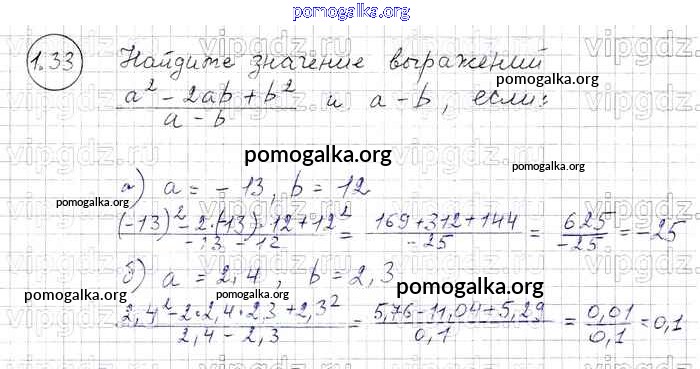 pomogalka.org
1.33 Найдите значение выражений
pomogalka.org
(a² - 2ab + b²)/(a - b) и a - b, если:
pomogalka.org
а) a = -13, b = 12
pomogalka.org
pomogalka.org
((-13)² - 2·(-13)·12 + 12²)/(-13 - 12) = (169 + 312 + 144)/(-25) = 625/(-25) = -25
б) a = 2,4, b = 2,3
pomogalka.org
pomogalka.org
pomogalka.org
(2,4² - 2·2,4·2,3 + 2,3²)/(2,4 - 2,3) = (5,76 - 11,04 + 5,29)/0,1 = 0,01/0,1 = 0,1